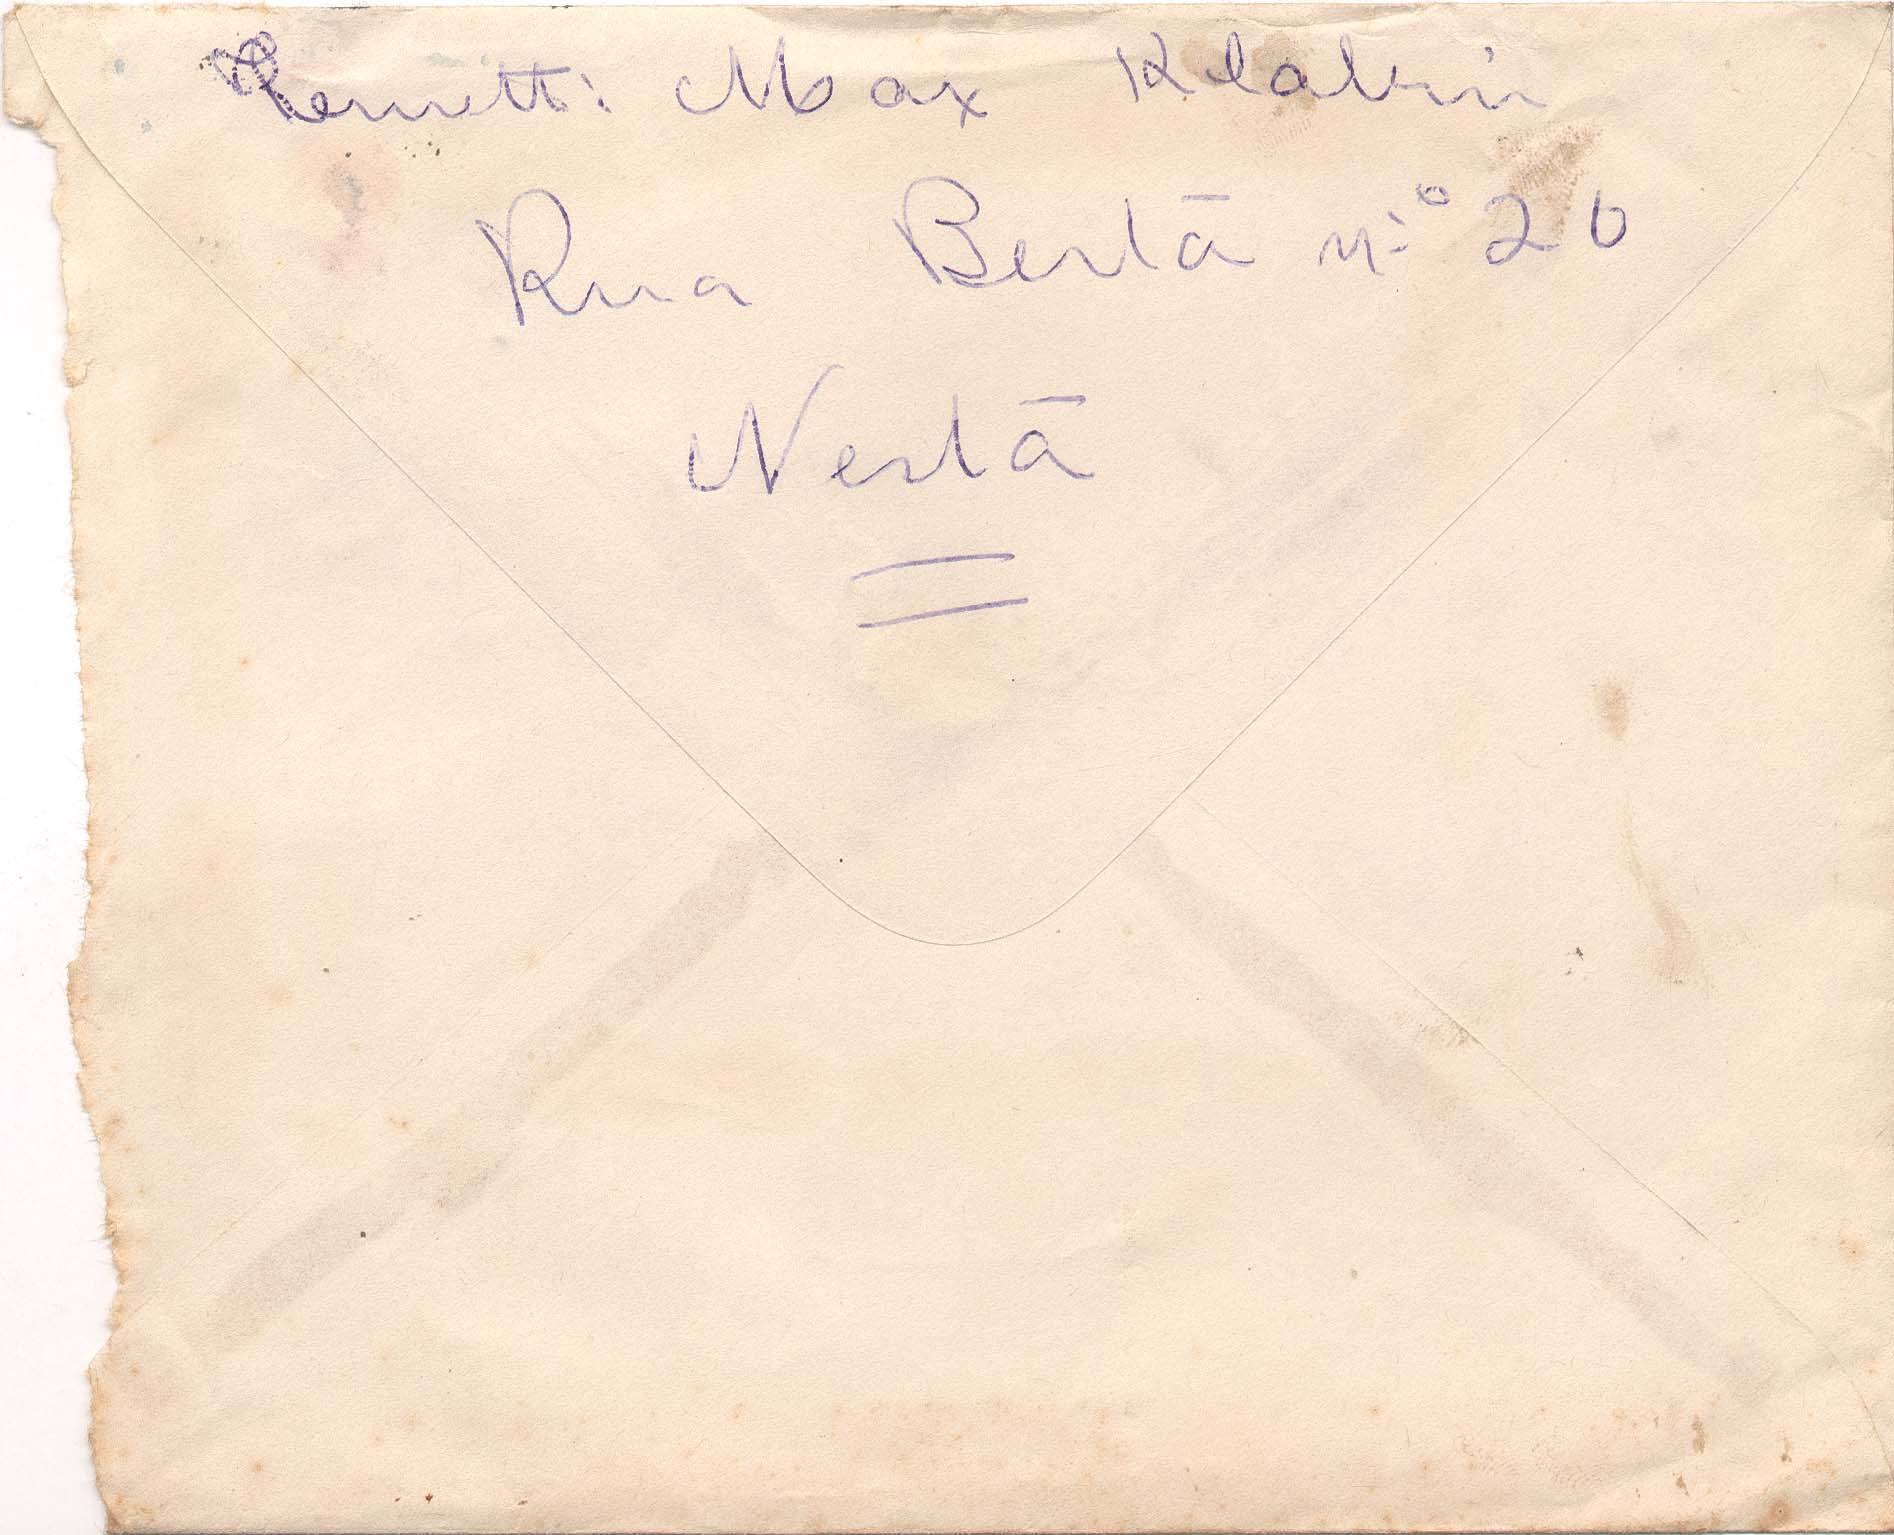 Remett: Max Klabin
Rua Bertā n.º 26
Nestā